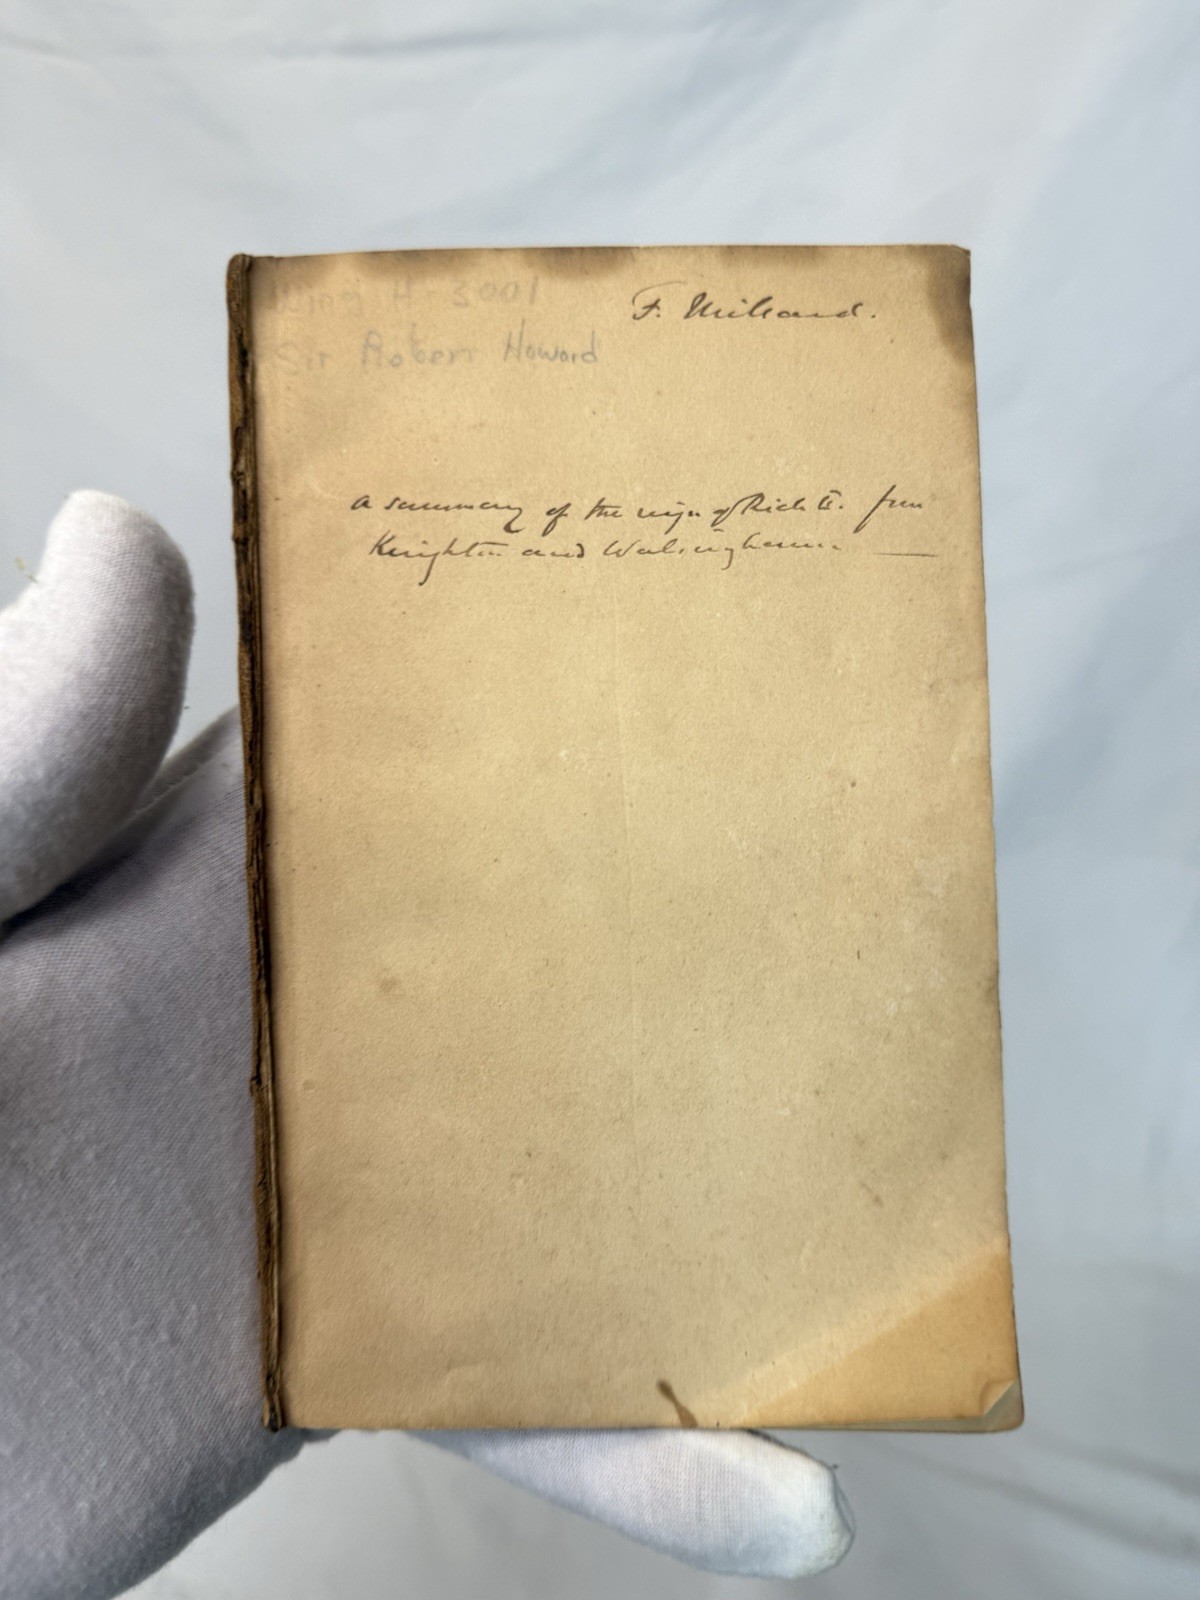 Wing H-3001
Sir Robert Howard
F. Millard.
A summary of the reign of Rich II. from
Knighton and Walsingham. —